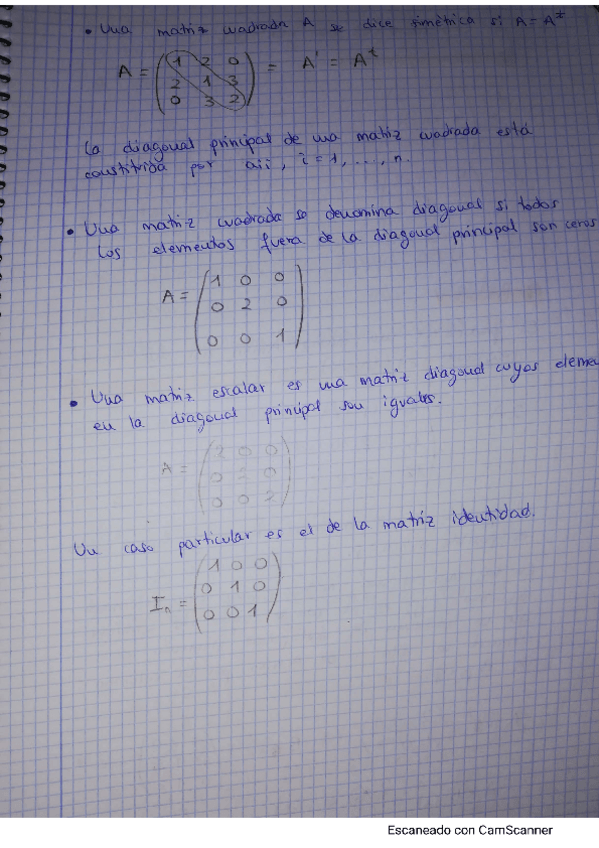 • Una matriz cuadrada A se dice simétrica si A = A^t
A = (1 2 0
2 1 3
0 3 2) = A' = A^t
La diagonal principal de una matriz cuadrada está
constituida por aii, i=1, ..., n.
• Una matriz cuadrada se denomina diagonal si todos
los elementos fuera de la diagonal principal son ceros
A = (1 0 0
0 2 0
0 0 1)
• Una matriz escalar es una matriz diagonal cuyos eleme
en la diagonal principal son iguales.
A = (2 0 0
0 2 0
0 0 2)
Un caso particular es el de la matriz identidad.
In = (1 0 0
0 1 0
0 0 1)
Escaneado con CamScanner